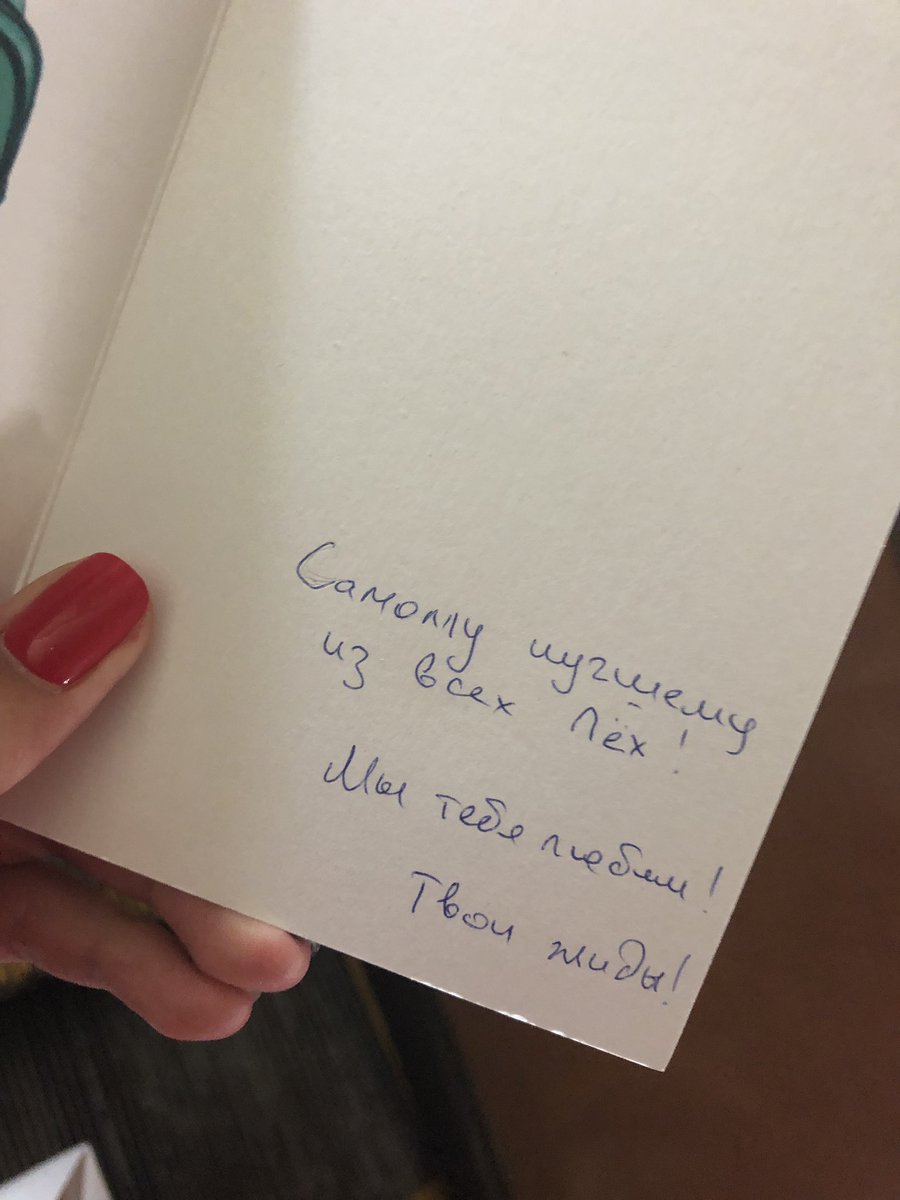 Самому лучшему
из всех Лёх!
Мы тебя любим!
Твои жиды!